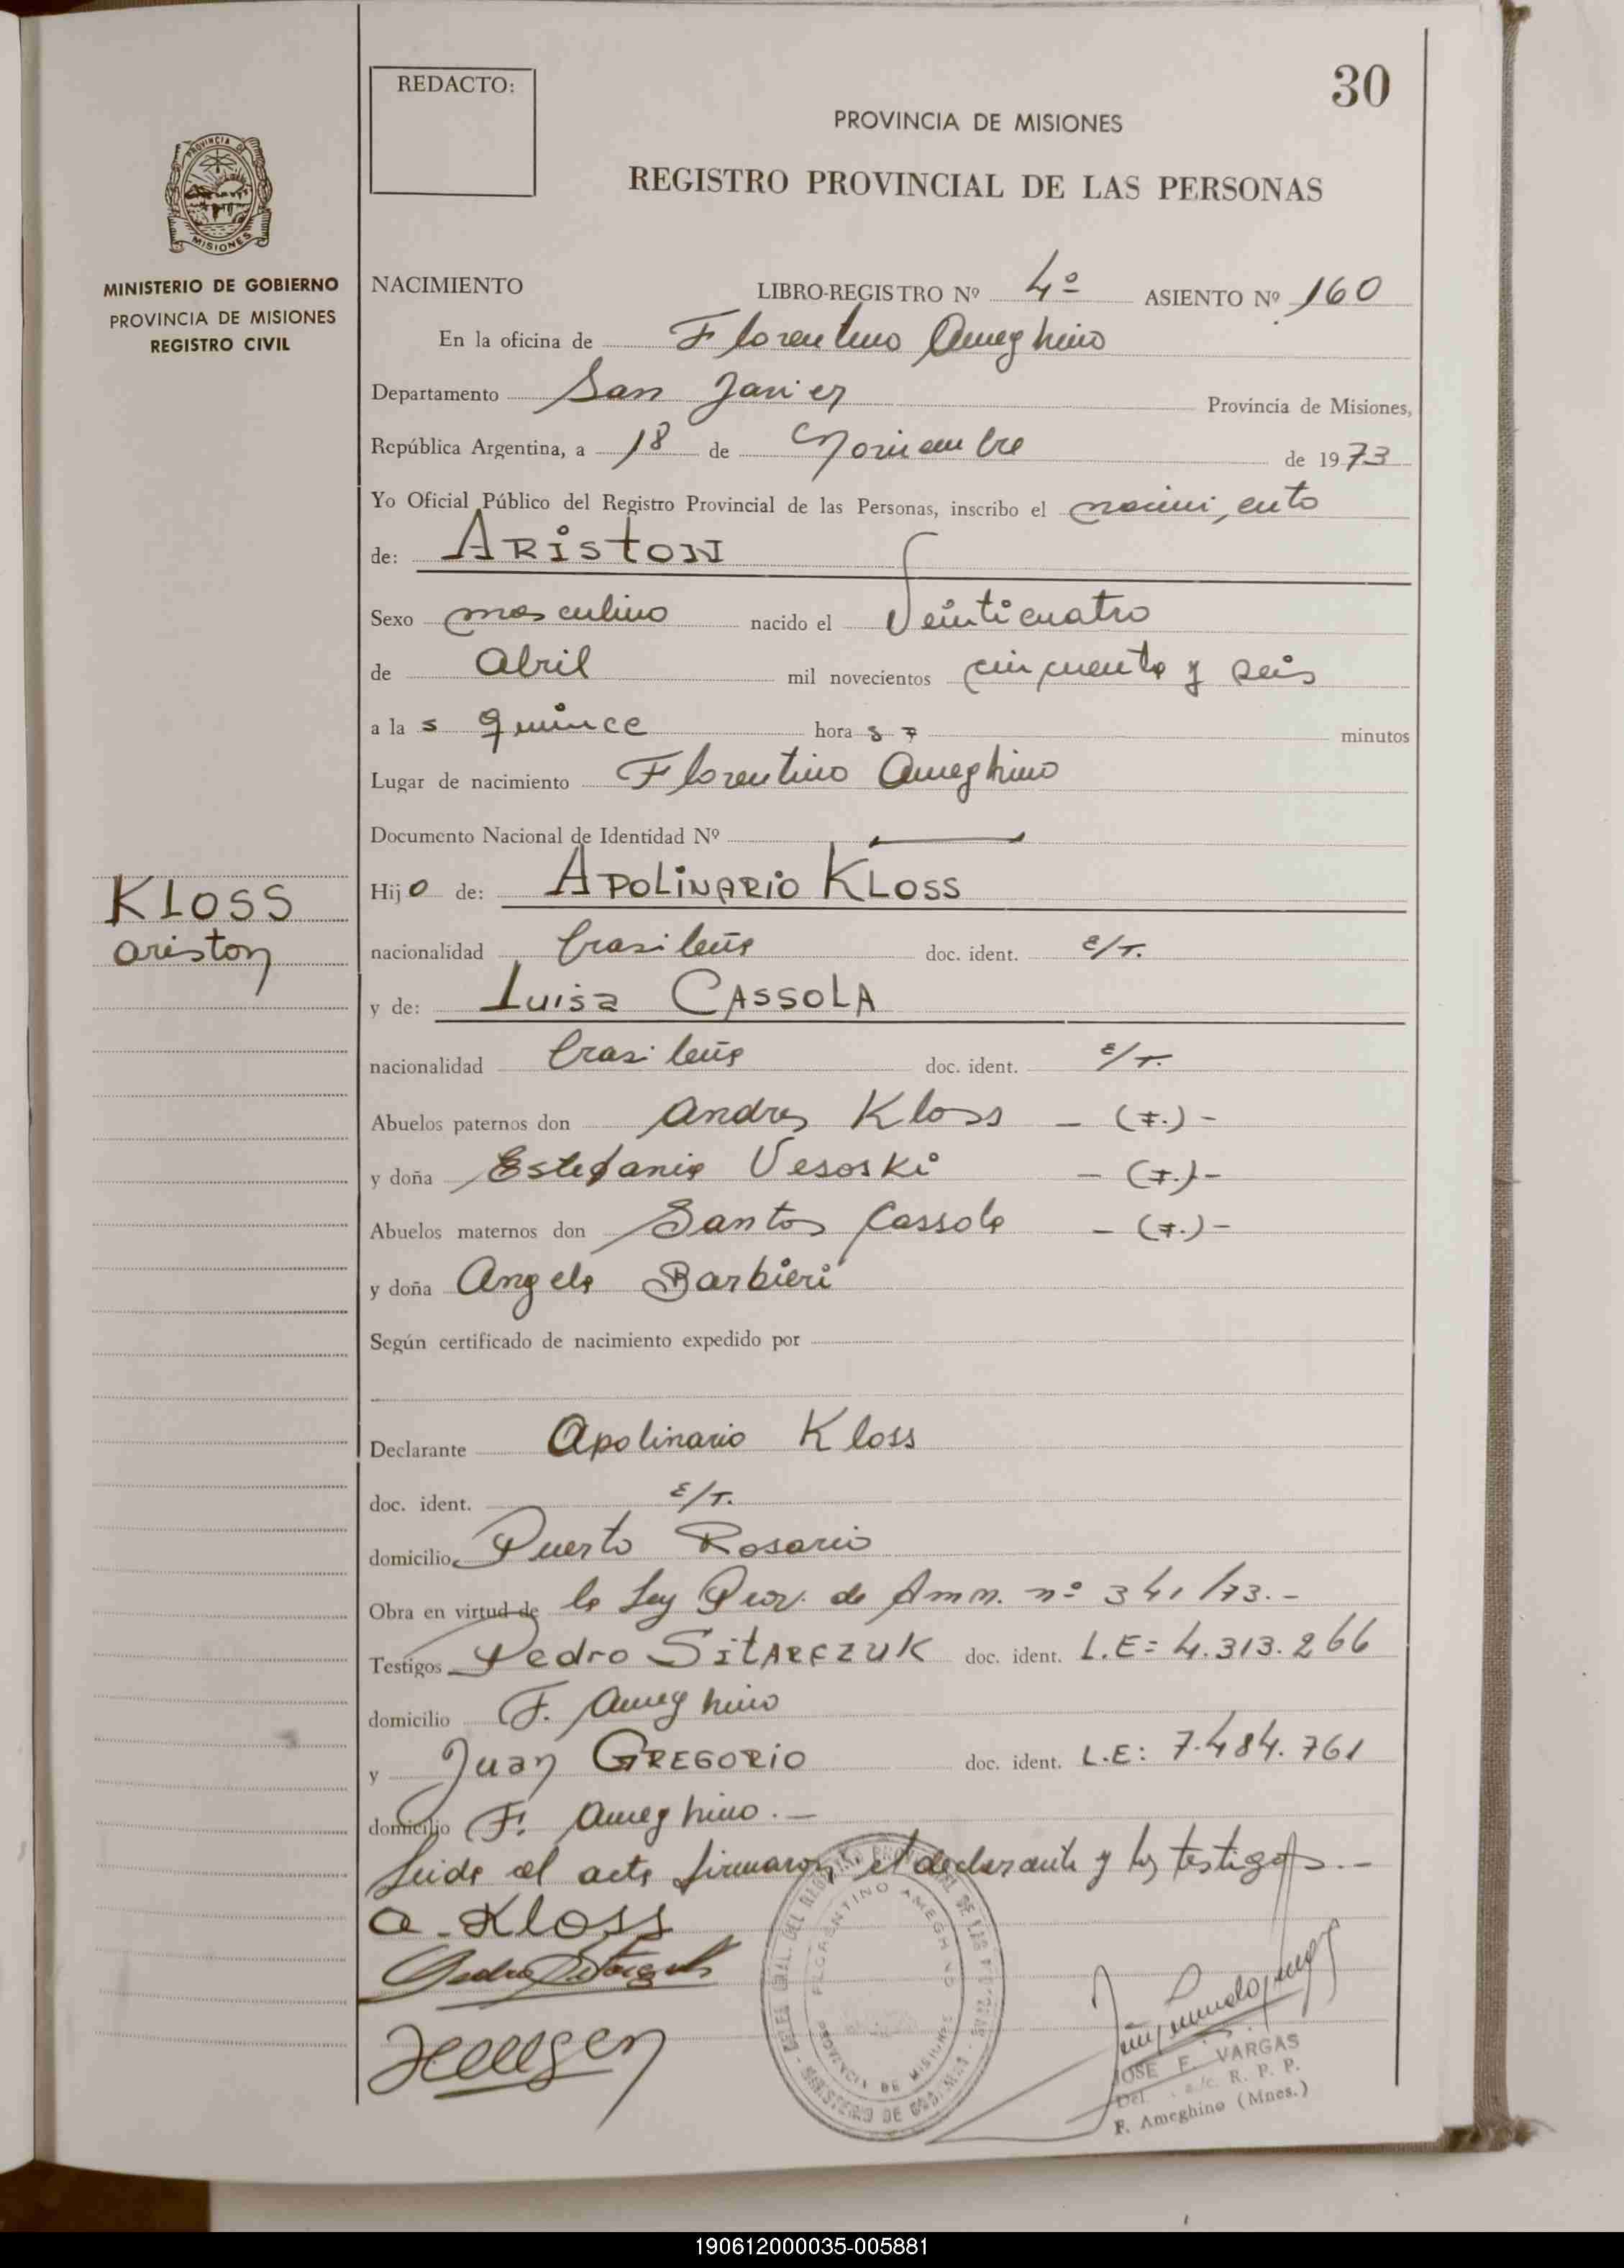 30
REDACTO:
PROVINCIA DE MISIONES
REGISTRO PROVINCIAL DE LAS PERSONAS
PROVINCIA DE
MISIONES
MINISTERIO DE GOBIERNO
PROVINCIA DE MISIONES
REGISTRO CIVIL
NACIMIENTO LIBRO-REGISTRO Nº 4º ASIENTO Nº 160
En la oficina de Florentino Ameghino
Departamento San Javier Provincia de Misiones,
República Argentina, a 18 de Noviembre de 1973
Yo Oficial Público del Registro Provincial de las Personas, inscribo el nacimiento
de: ARISTON
Sexo masculino nacido el Veinticuatro
de Abril mil novecientos cincuenta y seis
a la s quince hora s minutos
Lugar de nacimiento Florentino Ameghino
Documento Nacional de Identidad Nº
KLOSS
Ariston
Hijo de: APOLINARIO KLOSS
nacionalidad brasileña doc. ident. E/T.
y de: Luisa CASSOLA
nacionalidad brasileña doc. ident. E/T.
Abuelos paternos don Andres Kloss - (F.) -
y doña Estefania Vesoski - (F.) -
Abuelos maternos don Santos Cassola - (F.) -
y doña Angela Barbieri
Según certificado de nacimiento expedido por
Declarante Apolinario Kloss
doc. ident. E/T.
domicilio Puerto Rosario
Obra en virtud de la Ley Prov. de Amn. nº 341/73.-
Testigos Pedro SITARCZUK doc. ident. L.E= 4.313.266
domicilio F. Ameghino
y Juan GREGORIO doc. ident. L.E: 7.484.761
domicilio F. Ameghino.-
Leida el acta firmaron, el declarante y los testigos.-
A. Kloss
FLORENTINO AMEGHINO
PROVINCIA DE MISIONES
JOSE F. VARGAS
Del. a/c. R. P. P.
F. Ameghino (Mnes.)
190612000035-005881